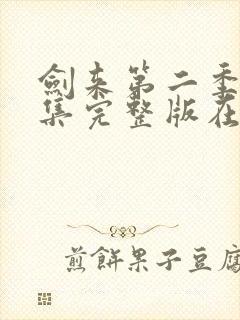 劍来第二季
集完整版在
煎餅果子豆腐